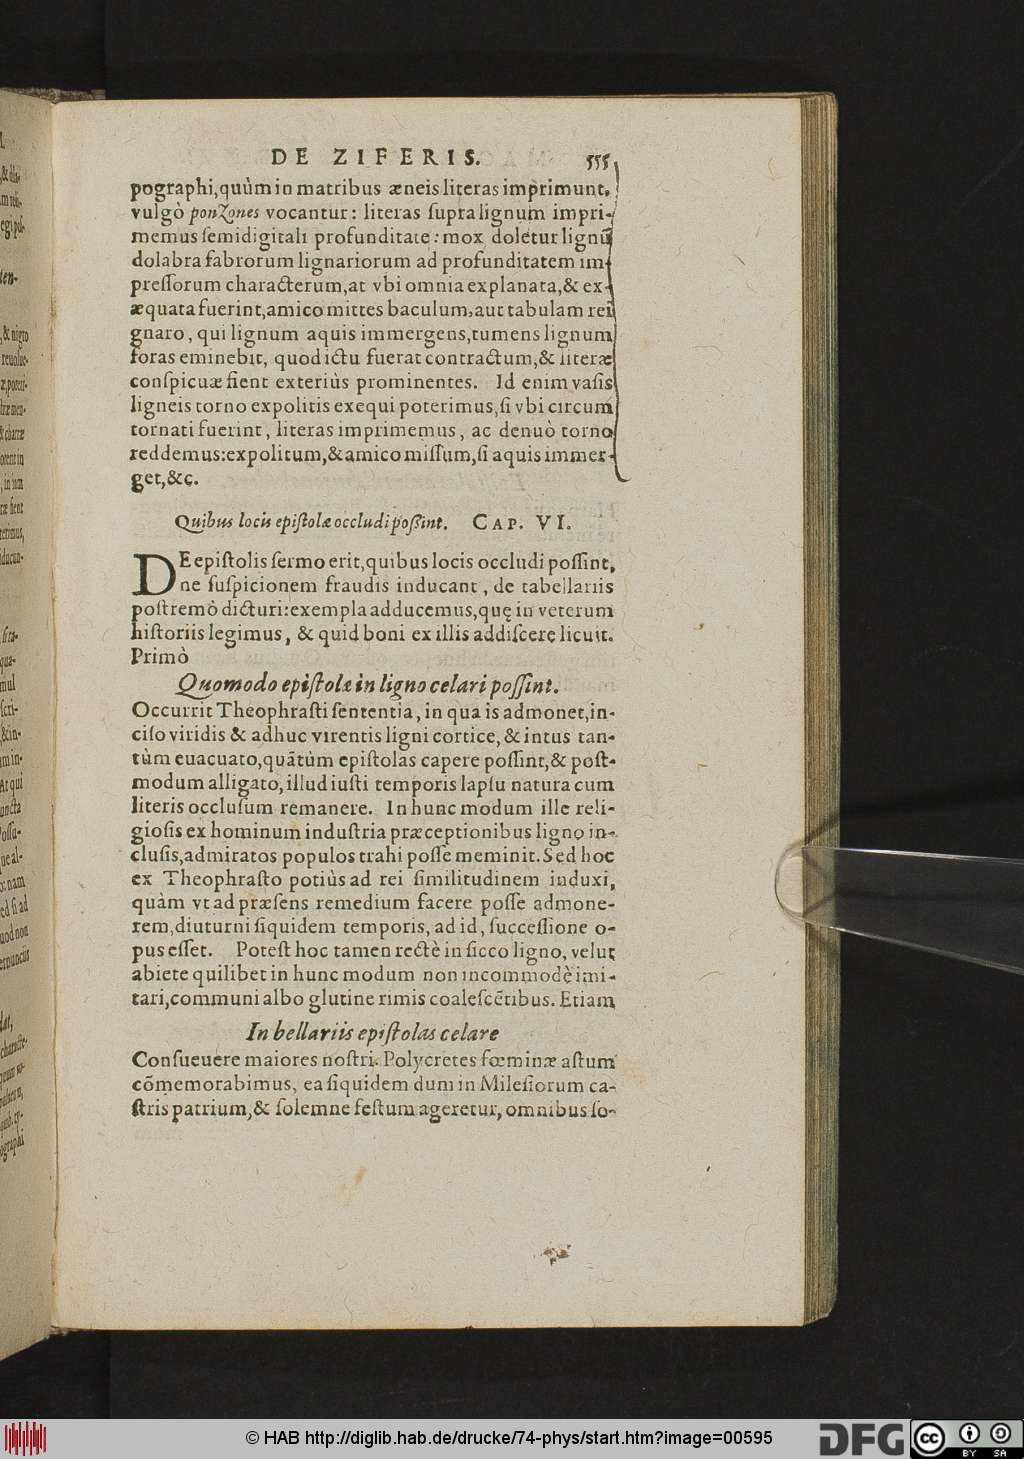 DE ZIFERIS. 555
pographi,quùm in matribus æneis literas imprimunt,
vulgò ponzones vocantur: literas ſupra lignum impri-
memus ſemidigitali profunditate: mox doletur lignũ
dolabra fabrorum lignariorum ad profunditatem im-
preſſorum characterum,at vbi omnia explanata,& ex-
æquata fuerint,amico mittes baculum,aut tabulam rei
gnaro, qui lignum aquis immergens,tumens lignum
foras eminebit, quod ictu fuerat contractum,& literæ
conſpicuæ fient exteriùs prominentes. Id enim vaſis
ligneis torno expolitis exequi poterimus,ſi vbi circum
tornati fuerint, literas imprimemus, ac denuò torno
reddemus:expolitum,& amico miſſum,ſi aquis immer-
get,&c.
Quibus locis epiſtolæ occludi poſſint. CAP. VI.
DE epiſtolis ſermo erit,quibus locis occludi poſſint,
ne ſuſpicionem fraudis inducant, de tabellariis
poſtremò dicturi:exempla adducemus,quę in veterum
hiſtoriis legimus, & quid boni ex illis addiſcere licuit.
Primò
Quomodo epiſtolæ in ligno celari poſſint.
Occurrit Theophraſti ſententia, in qua is admonet,in-
ciſo viridis & adhuc virentis ligni cortice, & intus tan-
tùm euacuato,quãtùm epiſtolas capere poſſint,& poſt-
modum alligato,illud iuſti temporis lapſu natura cum
literis occluſum remanere. In hunc modum ille reli-
gioſis ex hominum induſtria præceptionibus ligno in-
cluſis,admiratos populos trahi poſſe meminit. Sed hoc
ex Theophraſto potiùs ad rei ſimilitudinem induxi,
quàm vt ad præſens remedium facere poſſe admone-
rem,diuturni ſiquidem temporis, ad id, ſucceſſione o-
pus eſſet. Poteſt hoc tamen rectè in ſicco ligno, velut
abiete quilibet in hunc modum non incommodè imi-
tari,communi albo glutine rimis coaleſcẽtibus. Etiam
In bellariis epiſtolas celare
Conſueuere maiores noſtri. Polycretes fœminæ aſtum
cõmemorabimus, ea ſiquidem dum in Mileſiorum ca-
ſtris patrium,& ſolemne feſtum ageretur, omnibus ſo-
© HAB http://diglib.hab.de/drucke/74-phys/start.htm?image=00595
DFG
cc
BY SA